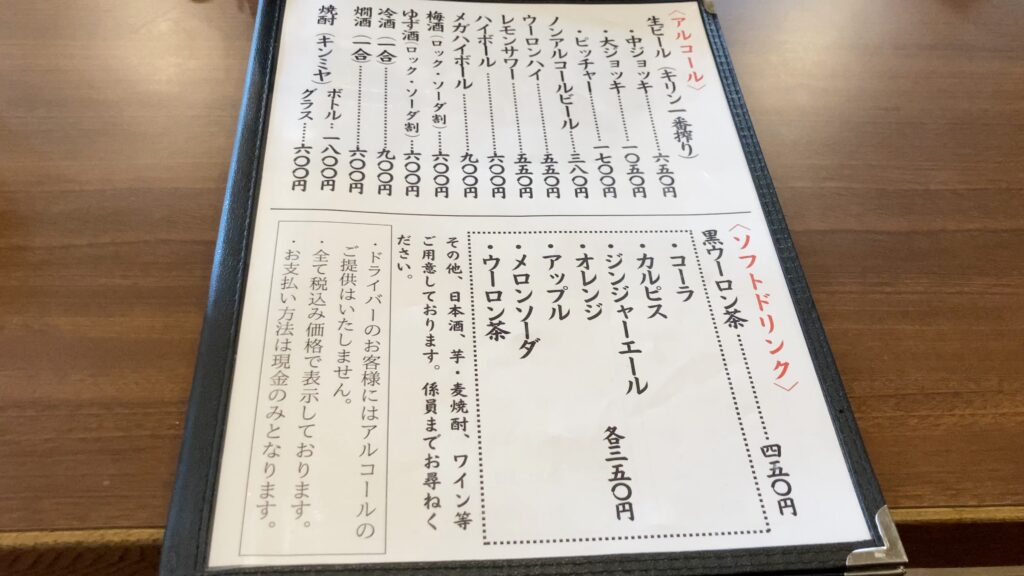 〈アルコール〉
生ビール(キリン一番搾り)
・中ジョッキ……六五〇円
・大ジョッキ……一〇五〇円
・ピッチャー……一七〇〇円
ノンアルコールビール……三八〇円
ウーロンハイ……五五〇円
レモンサワー……五五〇円
ハイボール……六〇〇円
メガハイボール……九〇〇円
梅酒(ロック・ソーダ割)……六〇〇円
ゆず酒(ロック・ソーダ割)……六〇〇円
冷酒(一合)……九〇〇円
燗酒(一合)……六〇〇円
焼酎(キンミヤ)ボトル…一八〇〇円
グラス……六〇〇円
〈ソフトドリンク〉
黒ウーロン茶……四五〇円
・コーラ
・カルピス
・ジンジャーエール
・オレンジ
・アップル
・メロンソーダ
・ウーロン茶
各三五〇円
その他、日本酒、芋・麦焼酎、ワイン等
ご用意しております。係員までお尋ねく
ださい。
・ドライバーのお客様にはアルコールの
ご提供はいたしません。
・全て税込み価格で表示しております。
・お支払い方法は現金のみとなります。